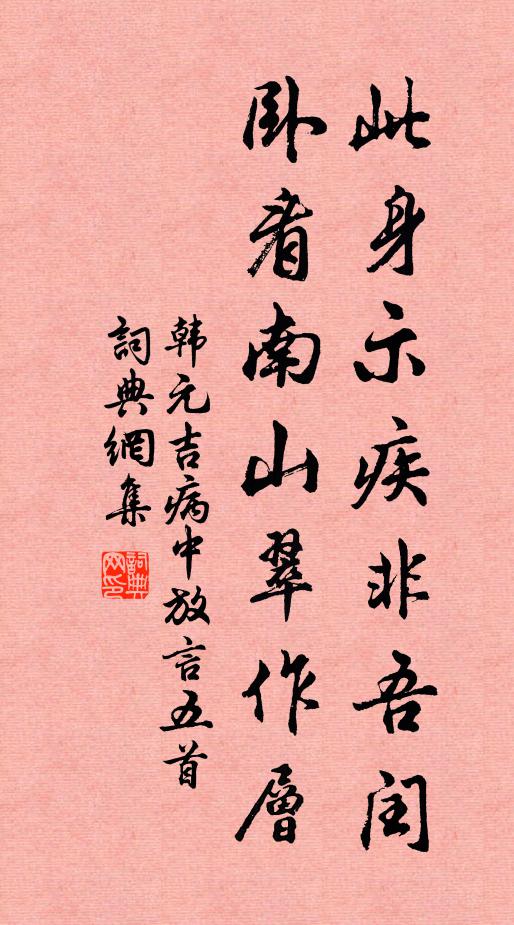 此身示疾非吾闰
卧看南山翠作層
韩元吉病中放言五首
詞典網集
詞典網印